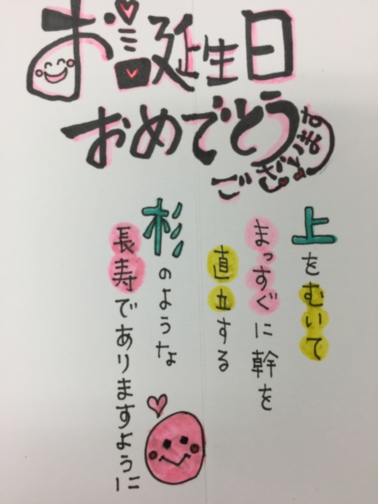 お誕生日
おめでとう
ございます
上をむいて
まっすぐに幹を
直立する
杉のような
長寿でありますように